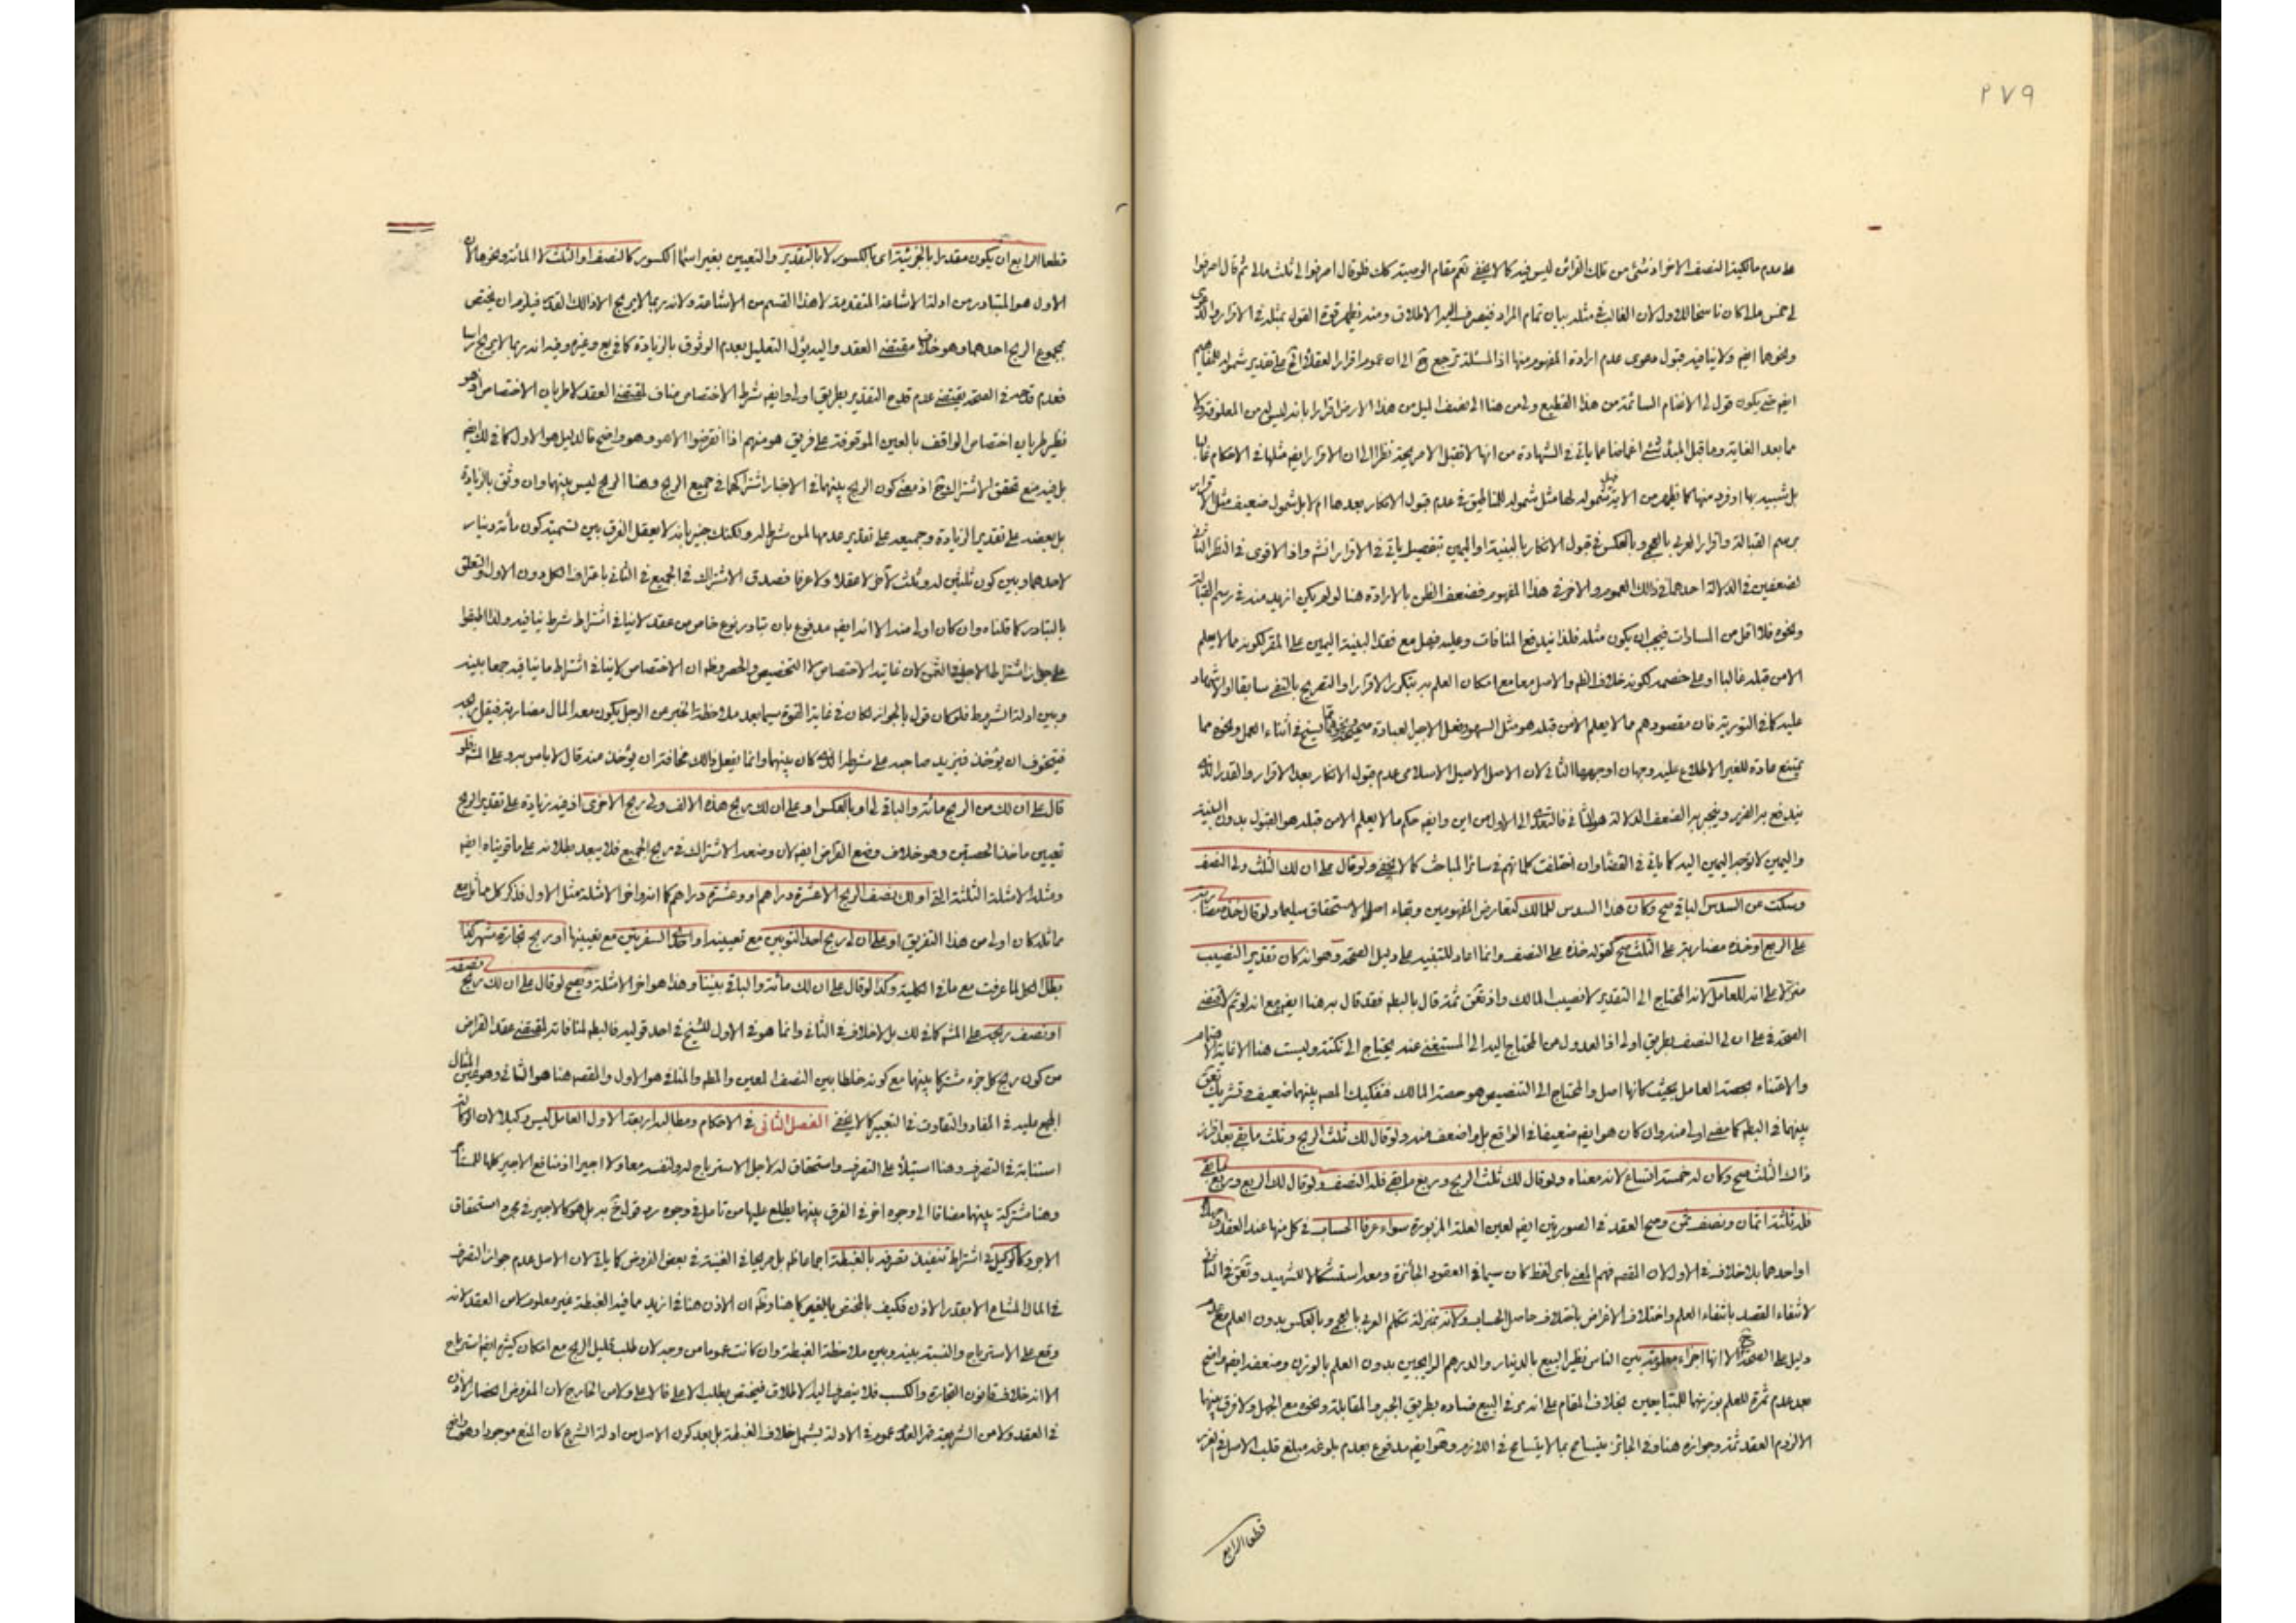 ٢٧٩
على عدم مالكية النصف الآخر اذ شئ من تلك القرائن ليس فيه كما لا يخفى نعم مقام الوصية كك فلو قال اصرفوا الى ثلث مالى ثم قال اصرفوا
لى خمس مالى كان ناسخا للاول لان الغالب فى مثله بيان تمام المراد فينصرف اليه الاطلاق ومنه يظهر قوة القول بمثله فى الاقرار
ونحوها ايضا ولا ينافيه قبول دعوى عدم ارادة المفهوم منها اذ المسئلة ترجع ح الى ان عموم اقرار العقلاء على تقدير شموله للمفاهيم
ايضا حتى يكون قول لى الاغنام السائمة من هذا القطيع ولى من هنا الى نصف الميل من هذا الارض اقرارا بانه ليس لى من المعلوفة ولا
ما بعد الغاية وما قبل المبدء شئ اغماضا عما ياتى فى الشهادة من انها لا تقبل الا صريحة نظرا الى ان الاقرار ايضا مثلها فى الاحكام
بل شبيه بها او فرد منها كما يظهر من الآية شموله لها مثل شموله للمناطيق فى عدم قبول الانكار بعدها ام لا بل شمول ضعيف مثل
برسم القبالة واقرار العربى بالعجمى وبالعكس فى قبول الانكار بالبينة او اليمين بتفصيل ياتى فى الاقرار انشه واذ الاقوى فى النظر
لضعفين فى الدلالة احدهما فى ذلك العموم والآخر فى هذا المفهوم فضعف الظن بالارادة هنا لو لم يكن ازيد منه فى رسم القبالة
ونحوه فلا اقل من المساوات فيجب ان يكون مثله فلذا يندفع المنافات وعليه فهل مع فقد البينة اليمين على المقر لكونه مما لا يعلم
الا من قبله غالبا او على خصمه لكونه خلاف الظه والاصل معا مع امكان العلم به بتكرر الاقرار او التصريح بالنفى سابقا او الاشهاد
عليه كما فى التورية فان مقصودهم مما لا يعلم الا من قبله هو مثل السهو وفعل الاجير العبادة فى اثناء العمل ونحوه مما
يمتنع عادة للغير الاطلاع عليه وجهان اوجههما الثانى لان الاصل الاصيل الاسلامى عدم قبول الانكار بعد الاقرار والقدر الذى
يندفع به الضرر وينجبر به الضعف الدلالة هو الثانى فالتعدى الى الاول من اين وايضا حكم ما لا يعلم الا من قبله هو القبول بدون البينة
واليمين لا توجه اليمين اليه كما ياتى فى القضاء وان اختلفت كلماتهم فى سائر المباحث كما لا يخفى ولو قال على ان لك الثلث ولى النصف
وسكت عن السدس الباقى صح وكان هذا السدس للمالك لتعارض المفهومين وبقاء اصل الاستحقاق سليما ولو قال خذه مضاربة
على الربع او خذه مضاربة على الثلث صح كقوله خذه على النصف وانما اعاد للتنبيه على دليل الصحة وهو انه كان تقدير النصيب
منزلا على انه للعامل لانه المحتاج الى التقدير لا نصيب المالك واذ تحقق ثمة قال بالبطه فقد قال به هنا ايضا مع انه لو تم لاقتضى
الصحة فى على ان لى النصف بطريق اولى اذ العدول من المحتاج اليه الى المستغنى عنه يحتاج الى نكتة وليست هنا الا غاية
والاعتناء بحصة العامل بحيث كانها اصل والمحتاج الى التنصيص هو حصة المالك فتفكيك المصه بينهما ضعيف
بينهما فى البطه كما مضى اولى منه وان كان هو ايضا ضعيفا فى الواقع بل واضعف منه ولو قال لك ثلث الربح وثلث ما بقى بعد افراز
ذلك الثلث صح وكان له خمسة اتساع لانه معناه ولو قال لك ثلث الربح وربع ما بقى فله النصف ولو قال لك الربع وربع ما بقى
فله ثلثة اثمان ونصف ثمن وصح العقد فى الصورتين ايضا لعين العلة المزبورة سواء عرفا الحساب فى كل منها عند العقد
او احدهما بلا خلاف فى الاول لان المقصه فهم المعنى باى لفظ كان سيما فى العقود الجائزة ومعه استشكالا للشهيد
لانتفاء القصد بانتفاء العلم واختلاف الاغراض باختلاف حاصل الحساب ولانه بمنزلة تكلم العربى بالعجمى وبالعكس بدون العلم مع عدم
دليل على الصحة ح الا انها اجزاء معلومة بين الناس نظير البيع بالدينار والدرهم الرايجين بدون العلم بالوزن ومنعه ايضا واضح
بعد عدم ثمرة للعلم بوزنهما للمتبايعين بخلاف المقام على انه يرى فى البيع فساده بطريق الجبر والمقابلة ونحوه مع الجهل ولا فرق بينهما
الا لزوم العقد ثمة وجوازه هنا وفى الجائز يتسامح بما لا يتسامح فى اللازم وهو ايضا مدفوع بعدم بلوغه مبلغ قلب الاصل فى الغرر
قطعا الرابع
قطعا الرابع ان يكون مقدرا بالجزئية اى بالكسور لا بالتقدير والتعيين بغير اسماء الكسور كالنصف او الثلث لا المائة ونحوها لان
الاول هو المتبادر من ادلة الاشاعة المتقدمة لا هذا القسم من الاشاعة ولانه ربما لا يربح الا ذلك القدر فيلزم ان يختص
بمجموع الربح احدهما وهو خلاف مقتضى العقد واليه يؤل التعليل بعدم الوثوق بالزيادة كما فى يع وغيره وفيه انه ربما لا يربح راسا
فعدم قدحه فى الصحة يقتضى عدم قدح التقدير بطريق اولى وايضا شرط الاختصاص مناف لمقتضى العقد لا طريان الاختصاص اذ هو
نظير طريان اختصاص الواقف بالعين الموقوفة على فريق هو منهم اذا انقرضوا الا هو وهو واضح فالدليل هو الاول كما فى لك ايضا
بل فيه منع تحقق الاشتراك ح اذ معنى كون الربح بينهما فى الاخبار اشتراكهما فى جميع الربح وهنا الربح ليس بينهما وان وثق بالزيادة
بل بعضه على تقدير الزيادة وجميعه على تقدير عدمها لمن شرط له ولكنك خبير بانه لا يعقل الفرق بين تسمية كون مائة دينار
لاحدهما وبين كون ثلثين له وثلث لآخر لا عقلا ولا عرفا فصدق الاشتراك فى الجميع فى الثانى باعتراف الكل دون الاول والتعلق
بالتبادر كما قلناه وان كان اولى منه الا انه ايضا مدفوع بان تبادر نوع خاص من عقد لا ينافى اشتراط شرط ينافيه ولذا اطبقوا
على جواز اشتراط الاجل فى الثمن لان غاية الاختصاص لا التخصيص والحصر وظه ان الاختصاص لا ينافى اشتراط ما ينافيه جمعا بينه
وبين ادلة الشروط فلو كان قول بالجواز لكان فى غاية القوة سيما بعد ملاحظة الخبر عن الرجل يكون معه المال مضاربة فيقل ربحه
فيتخوف ان يؤخذ فيزيد صاحبه على شرطه الذى كان بينهما وانما يفعل ذلك مخافة ان يؤخذ منه قال لا باس به وعلى المشه فلو
قال على ان لك من الربح مائة والباقى لى او بالعكس او على ان لك ربح هذه الالف ولى ربح الاخرى اذ فيه زيادة على تقدير الربح
تعيين ماخذ الحصتين وهو خلاف وضع القراض ايضا لان وضعه الاشتراك فى ربح الجميع فلا يبعد بطلانه على ما قويناه ايضا
ومثله الامثلة الثلثة التى او لك نصف الربح الا عشرة دراهم او وعشرة دراهم كما انه واخر الامثلة مثل الاول فذكر كل مماثل مع
مماثله كان اولى من هذا التفريق او على ان لى ربح احد الثوبين مع تعيينه او احدى السفرتين مع تعيينها او ربح تجارة شهر كذا
بطل الكل لما عرفت مع ما فى الكلية وكذا لو قال على ان لك مائة والباقى بيننا وهذا هو اخر الامثلة ويصح لو قال على ان لك ربح نصفه
او نصف ربحه على المشه كما فى لك بل لا خلاف فى الثانى وانما هو فى الاول للشيخ فى احد قوليه فالبطه لمنافاته لمقتضى عقد القراض
من كون ربح كل جزء مشتركا بينهما مع كونه خلطا بين النصف المعين والمطه والمنافى هو الاول والمقصه هنا هو الثانى
المجمع عليه فى المفاد والتفاوت فى التعبير كما لا يخفى الفصل الثانى فى الاحكام ومطالبه اربعة الاول العامل ليس وكيلا لان الوكالة
استنابة فى التصرف وهنا استيلاء على التصرف واستحقاق له لاجل الاسترباح له ولنفسه معا ولا اجيرا اذ منافع الاجير كلها للمستأجر
وهنا مشتركة بينهما مضافا الى وجوه اخر فى الفرق بينهما يطلع عليها من تامل فى وجوه رد قول ح به بل هو كالاجير فى مجرد استحقاق
الاجر وكالوكيل فى اشتراط تنفيذ تصرفه بالغبطة اجماعا ظه بل صريحا فى الغنية فى بعض الفروض كما ياتى لان الاصل عدم جواز التصرف
فى المال المشاع الا بقدر الاذن فكيف بالمختص بالغير كما هنا وظه ان الاذن هنا فى ازيد مما فيه الغبطة غير معلوم لا من العقد لانه
وقع على الاسترباح والنسبة بينه وبين ملاحظة الغبطة وان كانت عموما من وجه لان طلب قليل الربح مع امكان كثيره ايضا استرباح
الا انه خلاف قانون التجارة والكسب فلا ينصرف اليه الاطلاق فيختص بطلب الاعلى فالاعلى ولا من الخارج لان المفروض انحصار الاذن
فى العقد ولا من الشريعة لعدم عموم فى الادلة يشمل خلاف الغبطة بل بعد كون الاصل من ادلة الشرع كان المنع موجودا وهو واضح